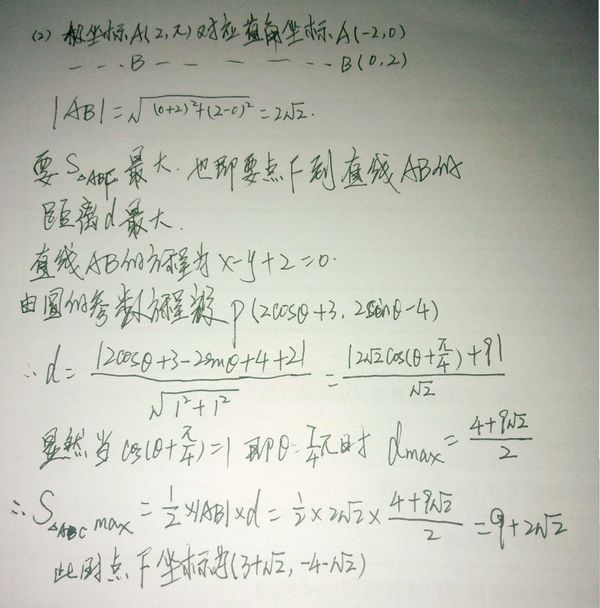 (2) 极坐标A(2,π)对应直角坐标A(-2,0)
— — — B — — — — — — B(0,2)
|AB|=√((0+2)²+(2-0)²)=2√2.
要S△ABF最大.也即要点F到直线AB的
距离d最大.
直线AB的方程为x-y+2=0.
由圆的参数方程设P(2cosθ+3,2sinθ-4)
∴d=|2cosθ+3-2sinθ+4+2|/√(1²+1²)=|2√2cos(θ+π/4)+9|/√2
显然当cos(θ+π/4)=1即θ=7/4π时 dmax=(4+9√2)/2
∴S△ABC max=1/2×|AB|×d=1/2×2√2×(4+9√2)/2=9+2√2
此时点F坐标为(3+√2,-4-√2)